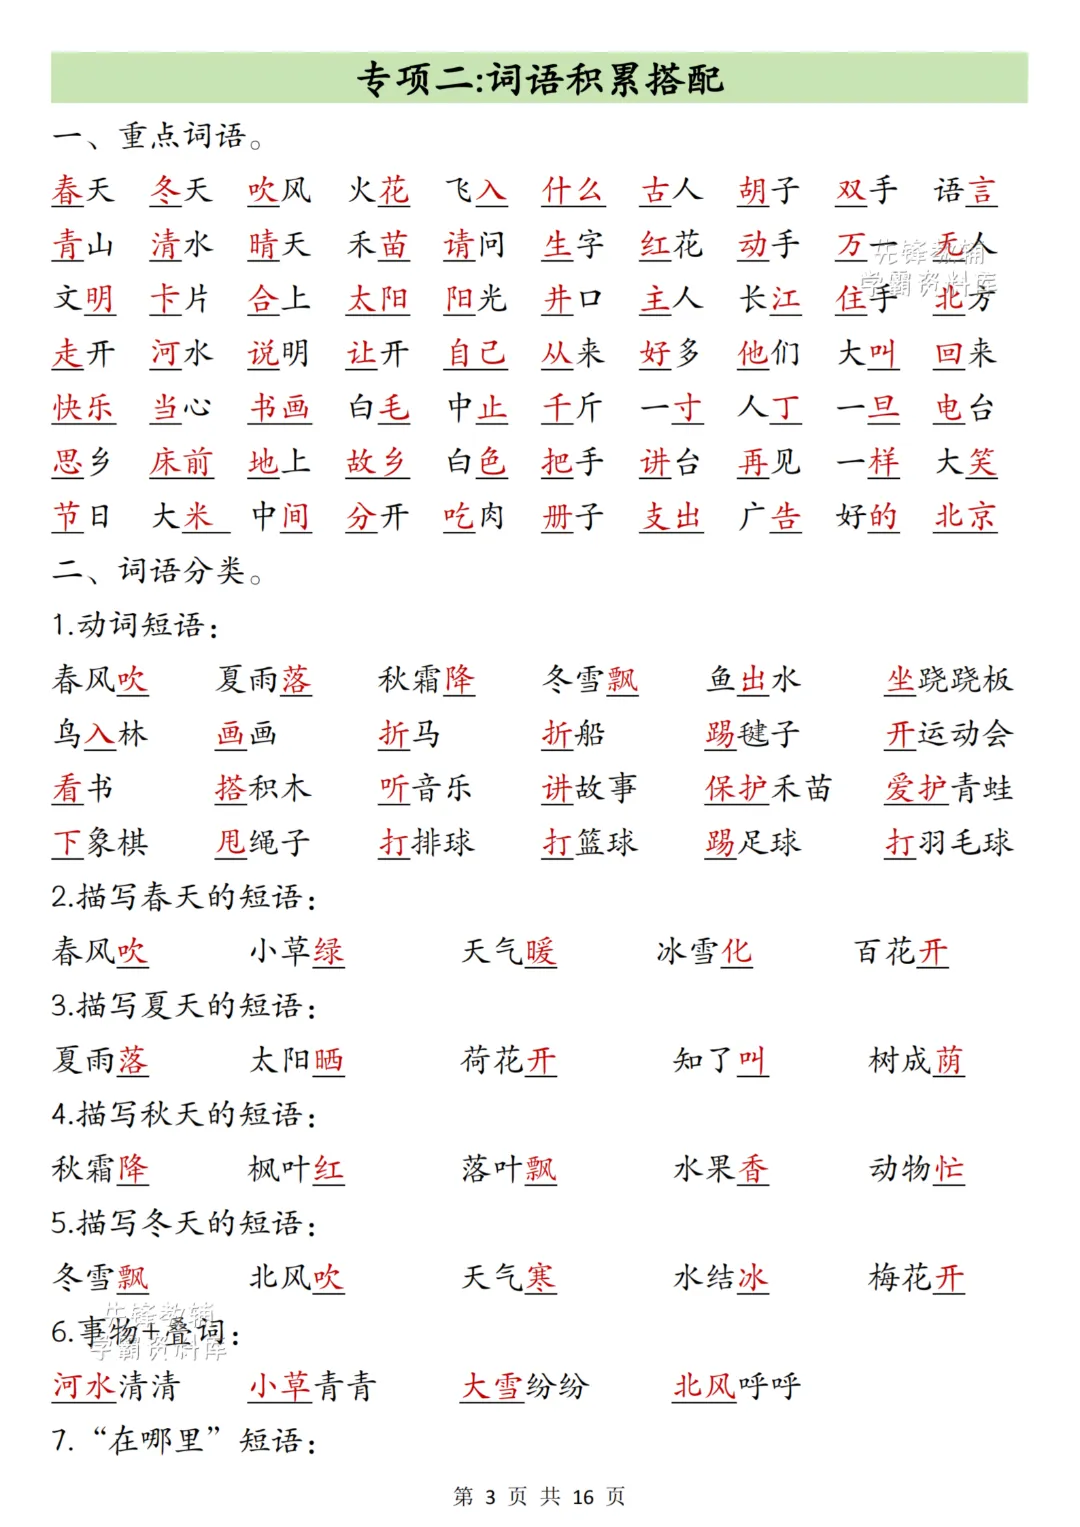 专项二:词语积累搭配
一、重点词语。
春天 冬天 吹风 火花 飞入 什么 古人 胡子 双手 语言
青山 清水 晴天 禾苗 请问 生字 红花 动手 万一 无人
文明 卡片 合上 太阳 阳光 井口 主人 长江 住手 北方
走开 河水 说明 让开 自己 从来 好多 他们 大叫 回来
快乐 当心 书画 白毛 中止 千斤 一寸 人丁 一旦 电台
思乡 床前 地上 故乡 白色 把手 讲台 再见 一样 大笑
节日 大米 中间 分开 吃肉 册子 支出 广告 好的 北京
二、词语分类。
1.动词短语:
春风吹 夏雨落 秋霜降 冬雪飘 鱼出水 坐跷跷板
鸟入林 画画 折马 折船 踢毽子 开运动会
看书 搭积木 听音乐 讲故事 保护禾苗 爱护青蛙
下象棋 甩绳子 打排球 打篮球 踢足球 打羽毛球
2.描写春天的短语:
春风吹 小草绿 天气暖 冰雪化 百花开
3.描写夏天的短语:
夏雨落 太阳晒 荷花开 知了叫 树成荫
4.描写秋天的短语:
秋霜降 枫叶红 落叶飘 水果香 动物忙
5.描写冬天的短语:
冬雪飘 北风吹 天气寒 水结冰 梅花开
6.事物+叠词:
河水清清 小草青青 大雪纷纷 北风呼呼
7.“在哪里”短语:
第 3 页 共 16 页
先锋教辅
学霸资料库
先锋教辅
学霸资料库